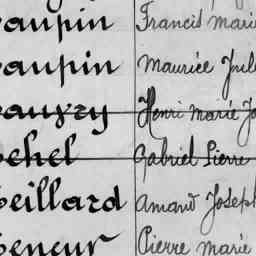 aupin Francis marie
aupin Maurice Jule
auzry Henri marie Jo
ehel Gabriel Pierre
eillard Amand Joseph
eneur Pierre marie